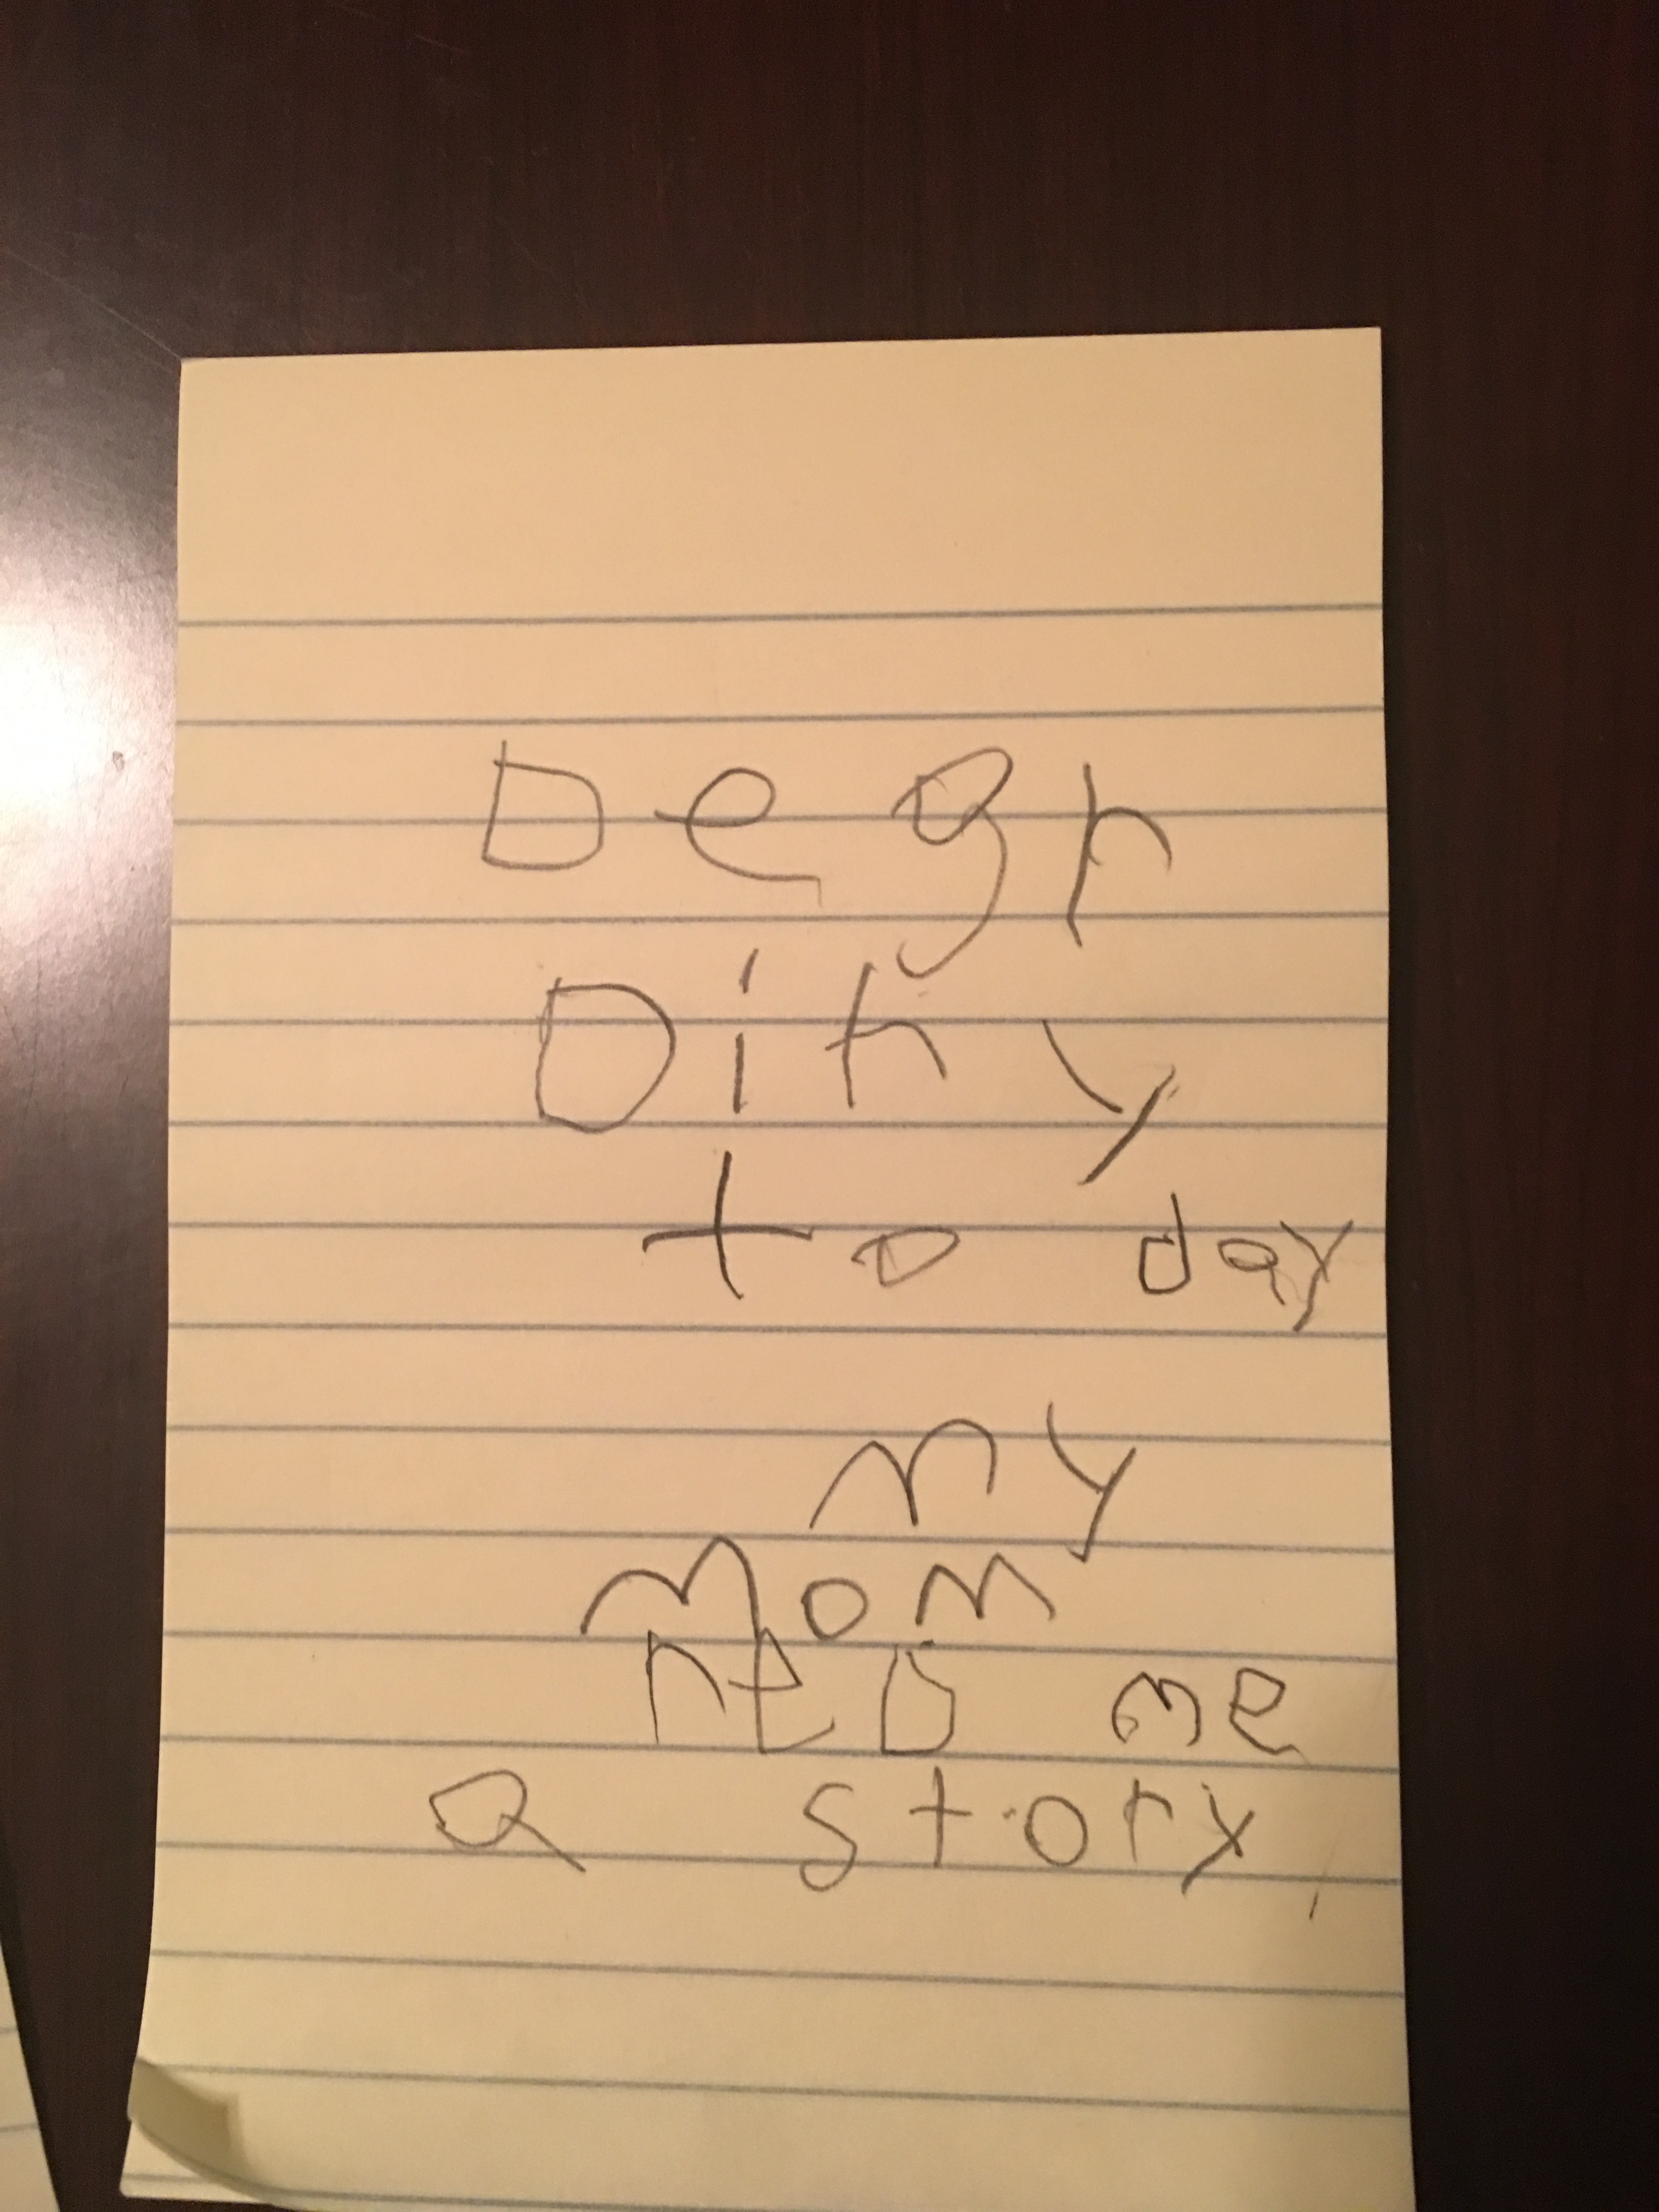 Dear
Diry
to day
my
mom
reD me
a story